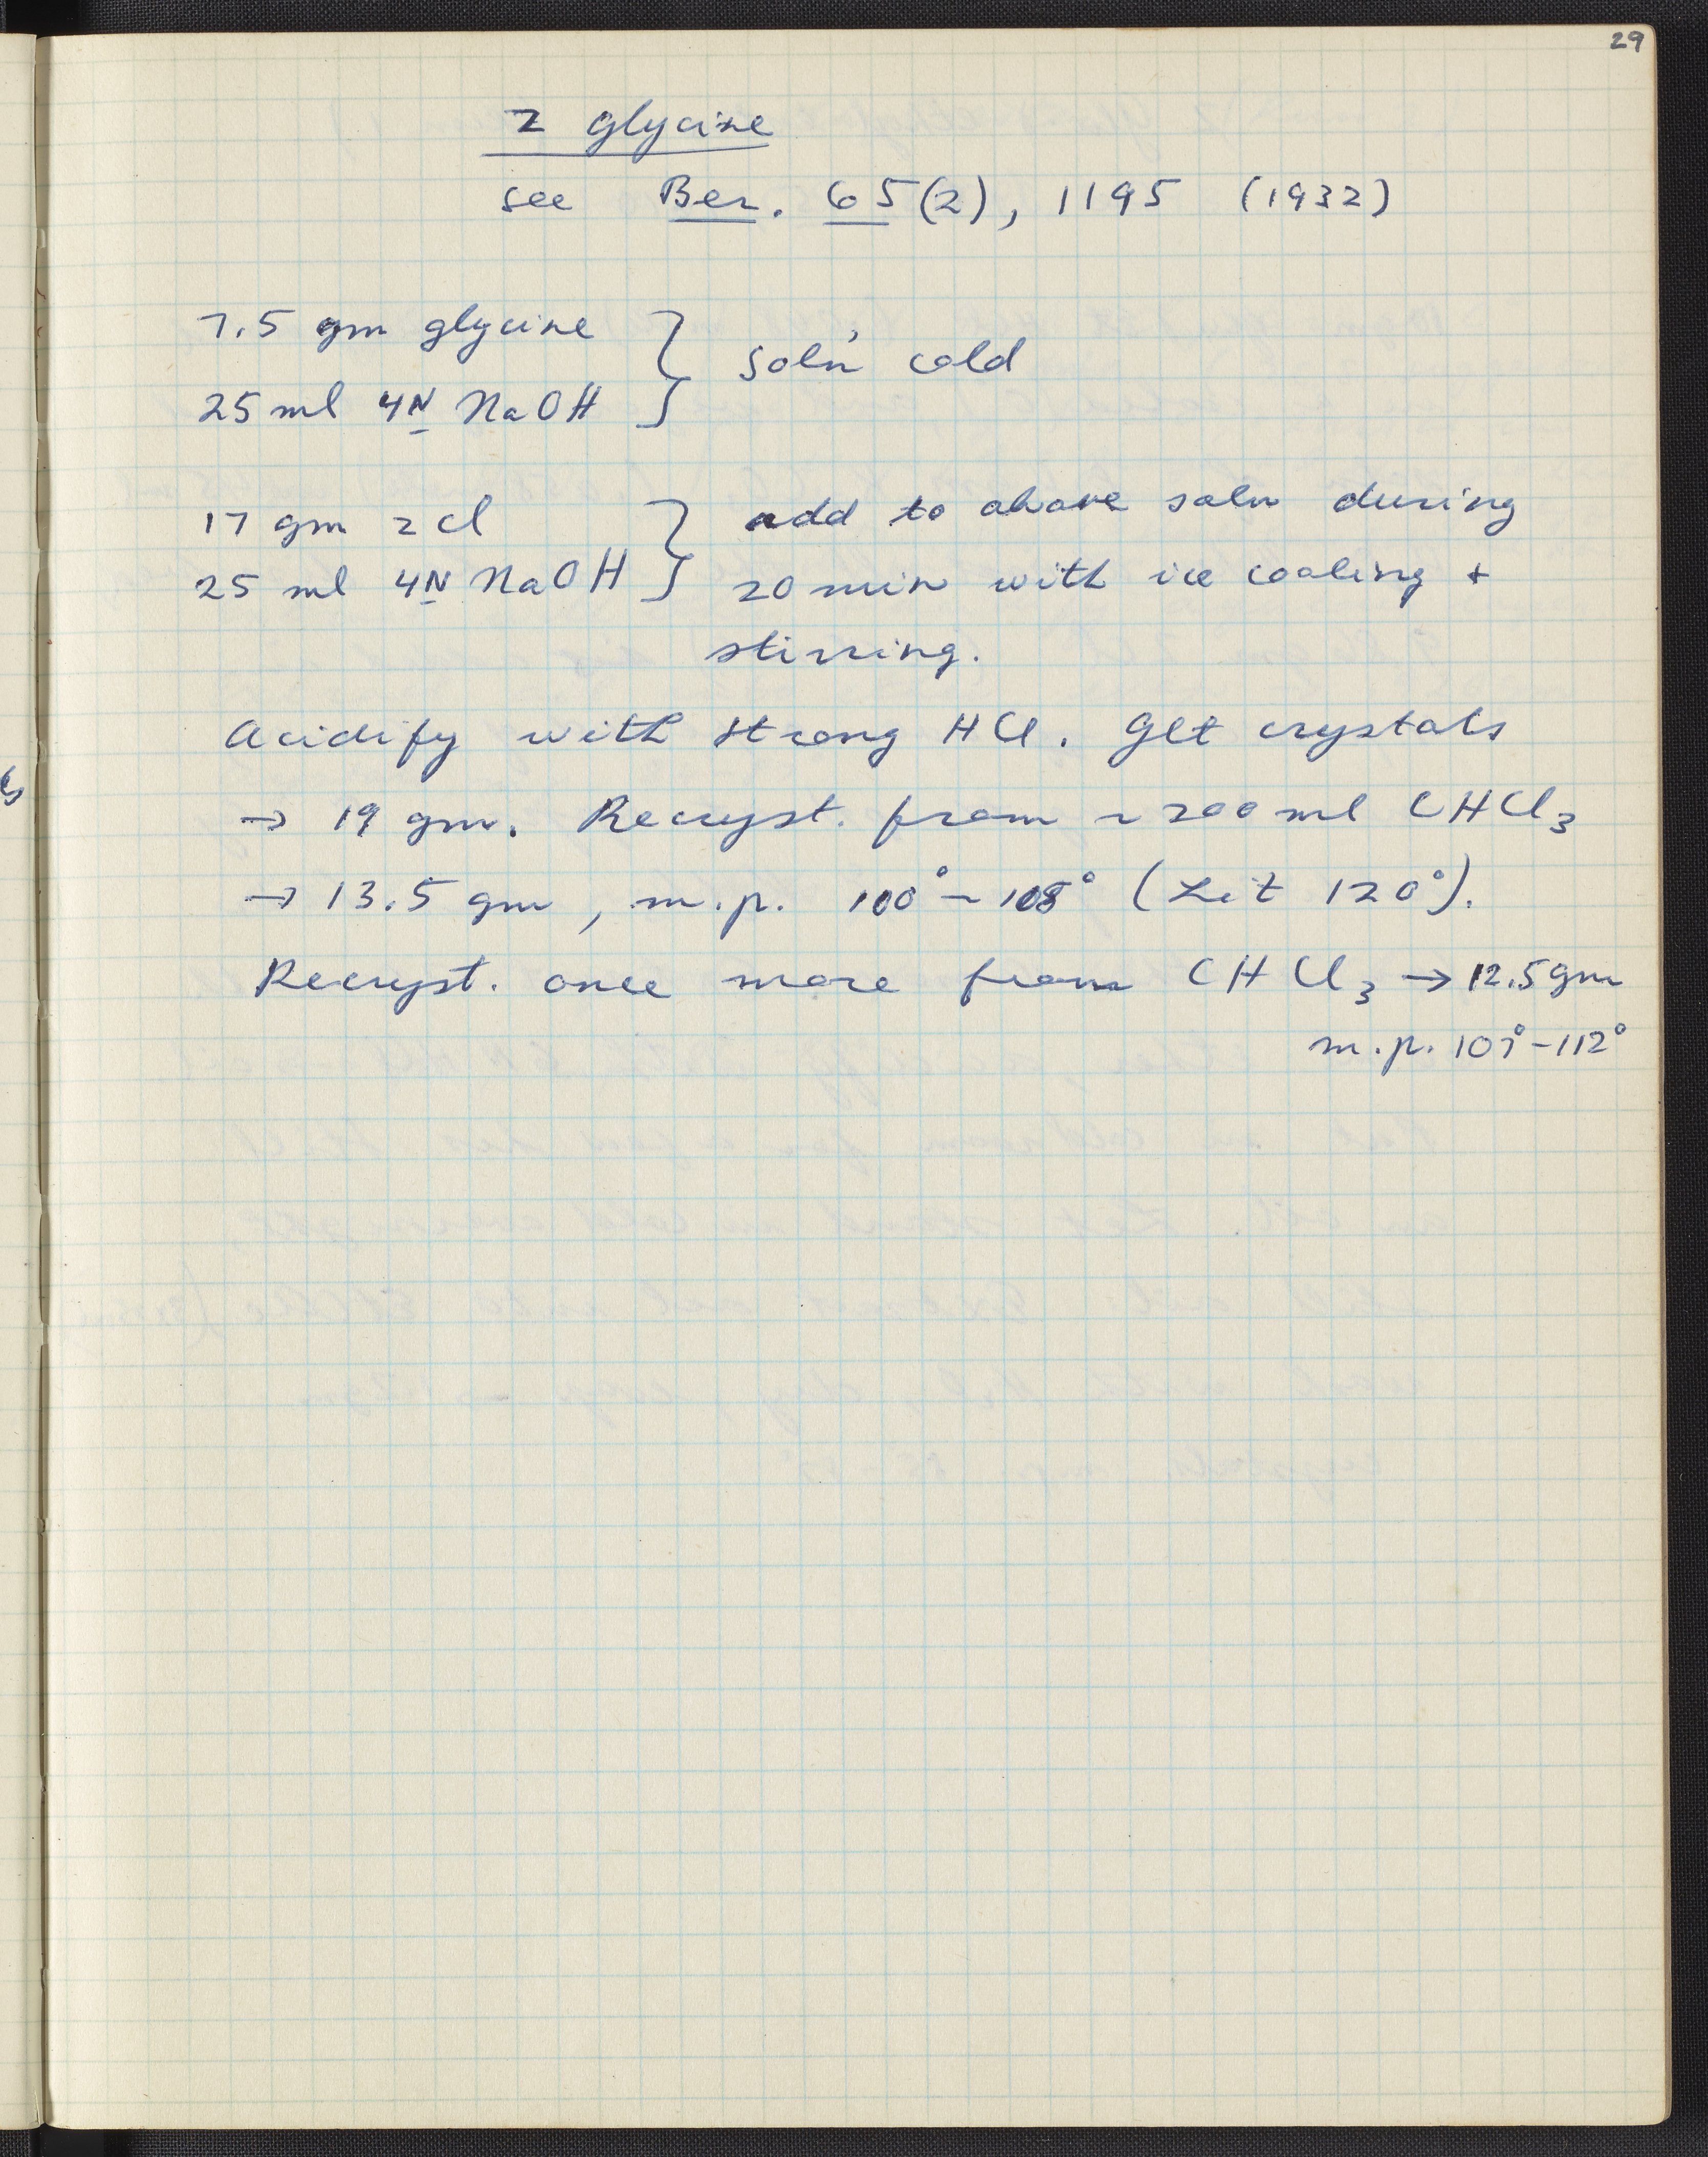 29
Z glycine
see Ber. 65(2), 1195 (1932)
7.5 gm glycine } soln' cold
25 ml 4N NaOH
17 gm Z Cl } add to above soln during
25 ml 4N NaOH 20 min with ice cooling +
stirring.
Acidify with strong HCl. Get crystals
→ 19 gm. Recryst. from ~ 200 ml CHCl₃
→ 13.5 gm, m.p. 100° – 108° (Lit 120°).
Recryst. once more from CHCl₃ → 12.5 gm
m.p. 107° – 112°